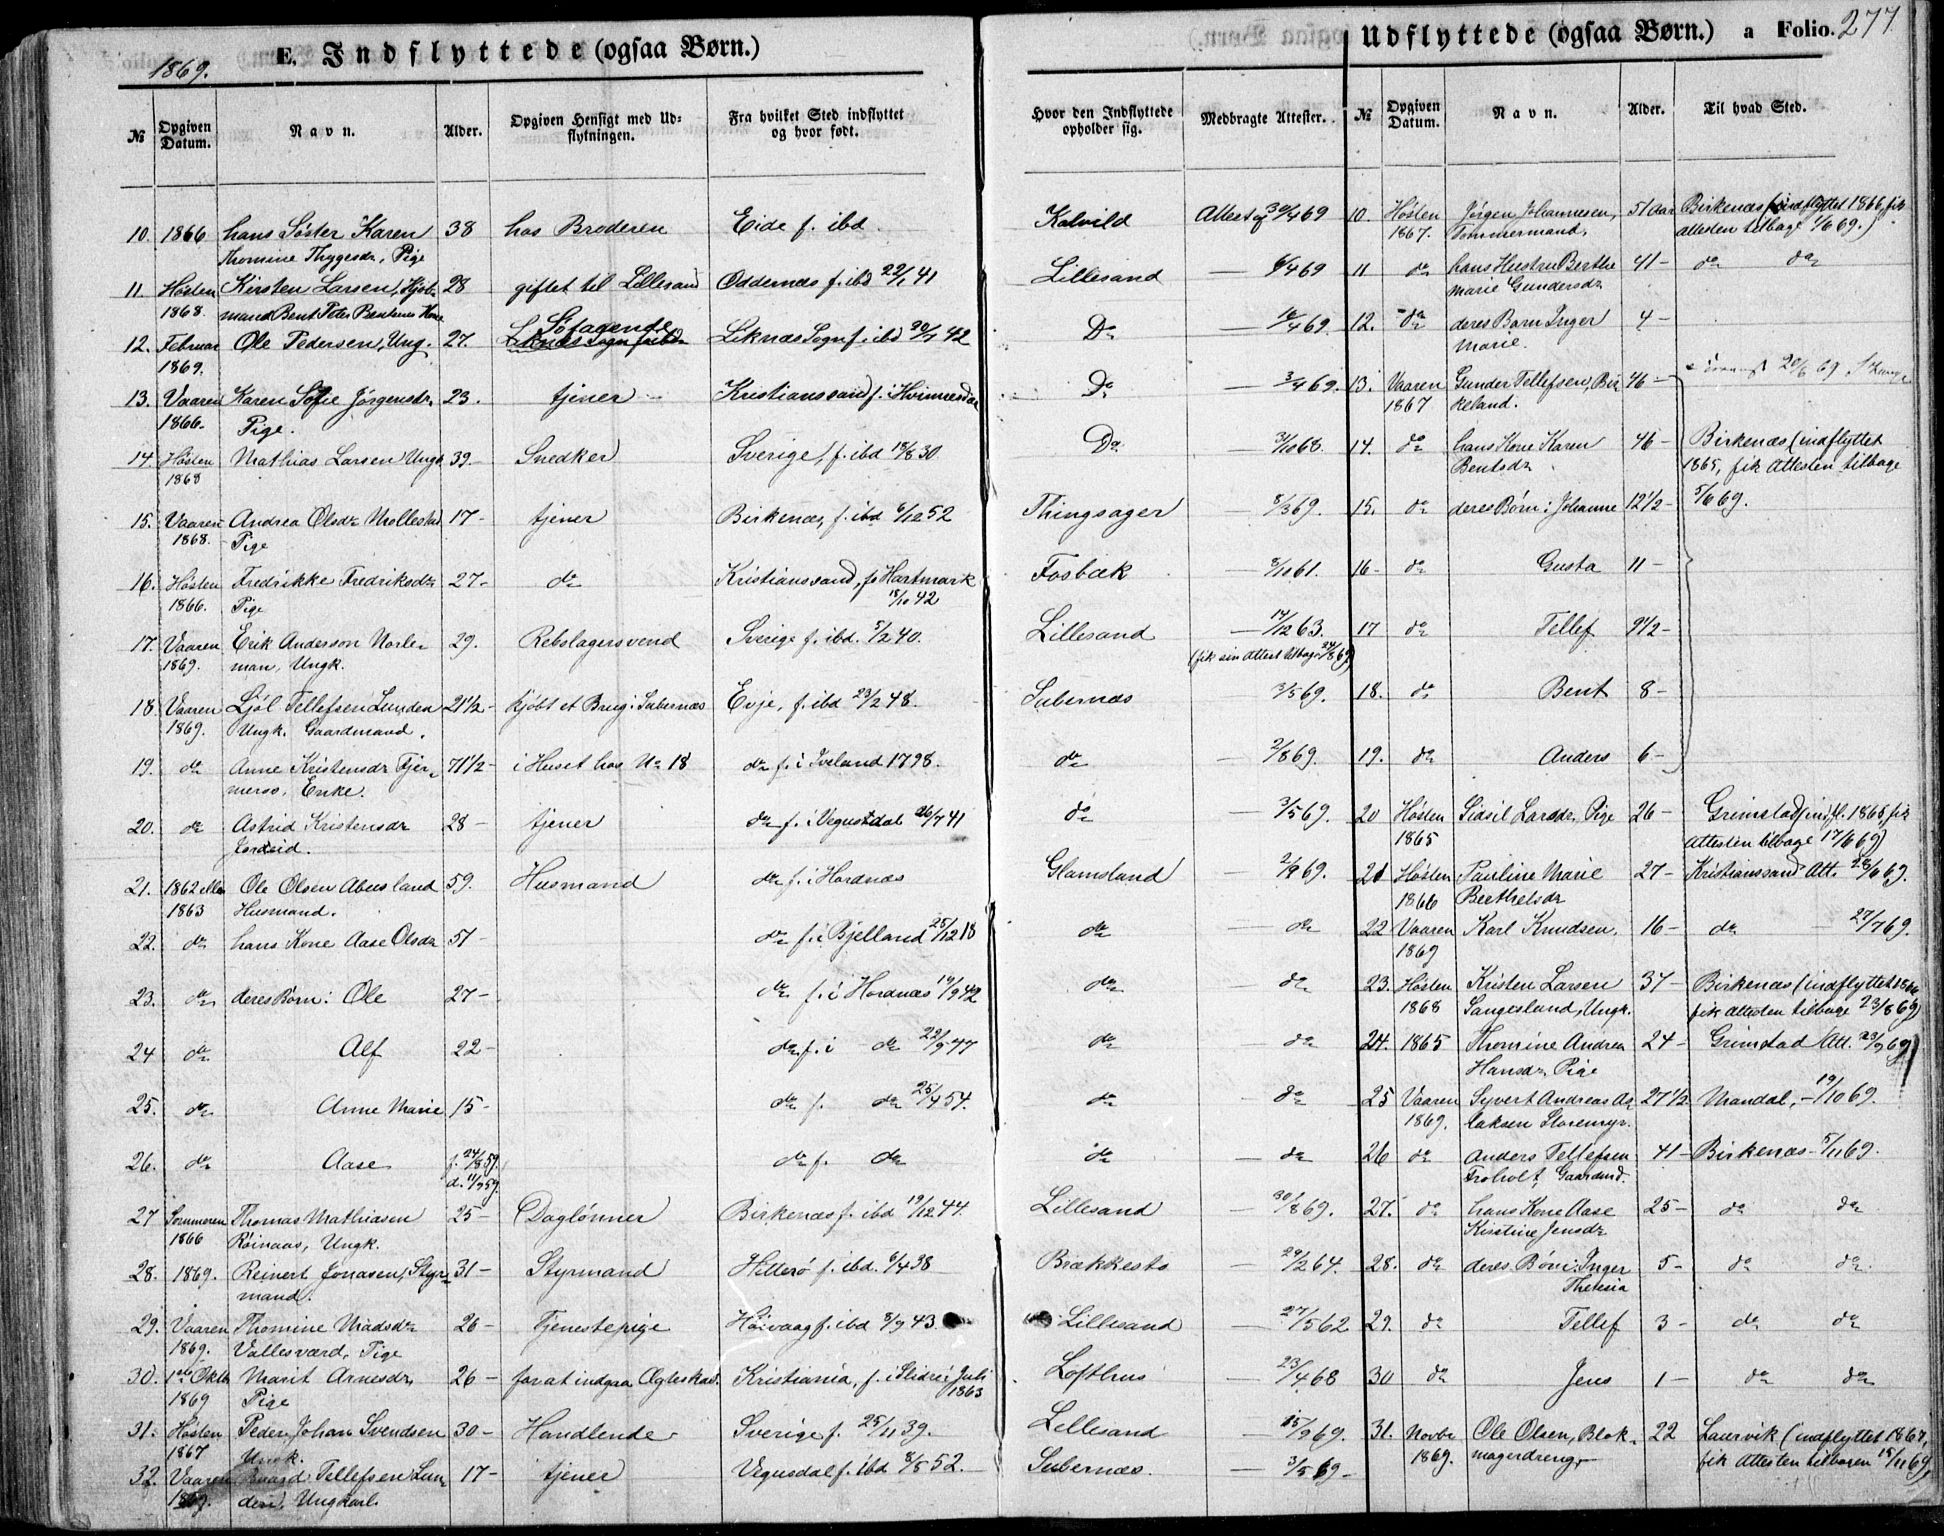 277
E. Indflyttede (ogsaa Børn.)
Udflyttede (ogsaa Børn.) a Folio.
1869.
№ Opgiven Datum. Navn. Alder. Opgiven Hensigt med Udflytningen. Fra hvilket Sted indflyttet og hvor født. Hvor den Indflyttede opholder sig. Medbragte Attester.
№ Opgiven Datum. Navn. Alder. Til hvad Sted.
10. 1866 hans Søster Karen 38 hos Broderen Eide f. ibd. Kalvild Attest af 30/4 69
Thomine Thygesdr, Pige
11. Høsten Kirsten Larsen, 28 giftet til Lillesand Oddernæs f. ibd 22/1 41 Lillesand — 6/4 69
1868. mand Bent Peter Bentsens Kone
12. Februar Ole Pedersen, Ung. 27. Søfagende Liknæs Sogn f. ibd 20/7 42 Do — 16/4 69.
1869.
13. Vaaren Karen Sofie Jørgensdr 23. tjener Kristianssand f. i Do — 3/4 69.
1866. Pige.
14 Høsten Mathias Larsen Ungk. 39. Snedker Sverige, f. ibd 18/8 30 Do — 31/10 68.
1868
15. Vaaren Andrea Olsdr Mollestad 17- tjener Birkenæs, f. ibd 6/12 52 Thingsager — 8/3 69.
1868. Pige
16. Høsten Fredrikke Fredriksdr 27- do Kristianssand, f. Hartmark Fosbæk — 8/10 61.
1866. Pige 18/10 42
17. Vaaren Erik Anderson Norle- 29. Rebslagersvend Sverige f. ibd. 5/2 40. Lillesand — 14/12 63.
1869. man, Ungk. (fik sin Attest tilbage 24/8 69)
18 Vaaren Ljøl Tellefsen Lunden 21½- kjøbt et Brug i Subernæs Evje, f. ibd 23/2 48. Subernæs — 3/5 69.
1869. Ungk. Gaardmand.
19. do Anne Kristensdr 71½- i Huset hos No 18 do f. i Iveland 1798. do — 2/8 69.
Enke.
20. do Astrid Kristensdr 28- tjener do f. i Vegusdal 26/7 41 do — 3/5 69.
21. 1862 eller Ole Olsen Abusland 59. Husmand do f. i Hordnæs Glamsland — 2/9 69.
1863 Husmand.
22. do hans Kone Aase Olsdr 51- do f. i Bjelland 25/12 18 do — do
23. do deres Børn: Ole 27- do f. i Hordnæs 19/9 42 do — do
24 do Alf 22- do f. i do 22/9 47 do — do
25. do Anne Marie 15- do f. do 25/4 54. do — do
26. do Aase f. 24/8 59. do f. do do — do
d. 11/9 59.
27 Sommeren Thomas Mathiasen 25- Daglønner Birkenæs f. ibd 19/12 44. Lillesand — 30/8 69.
1866 Røinaas, Ungk.
28. 1869. Reinert Jonasen, Styr- 31- Styrmand Hitterø f. ibd. 6/4 38 Brækkestø — 29/2 64.
mand.
29. Vaaren Thomine Madsdr 26- Tjenestepige Høivaag f. ibd 8/9 43 Lillesand — 27/5 62
1869. Vallesværd, Pige
30. 1ste Oktb Marit Arnesdr 26- for at indgaa Ægteskab. Kristiania, f. i Slidre i Juli Lofthus — 23/4 68
1869 Pige 1863
31. Høsten Peder Johan Svendsen 30- Handlende Sverige f. 25/11 39. Lillesand — 15/9 69.
1867 Ungk.
32. Vaaren Tellefsen Lun- 17- tjener Vegusdal f. ibd 8/5 52. Subernæs. — 3/5 69-
1869. den, Ungkarl.
10. Høsten Jørgen Johannesen, 51 Aar Birkenæs (indflyttet 1866, fik
1867. Tømmermand, Attesten tilbage 1/6 69.)
11 do hans Hustru Berthe 41- do do
Marie Gundersdr
12. do deres Barn Inger 4-
Marie.
20/6 69
13. Vaaren Gunder Tellefsen, Bir- 46-
1867 keland.
14. do hans Kone Karen 46- Birkenæs (indflyttet
Bentsdr 1865, fik Attesten tilbage
15. do deres Børn: Johanne 12½- 5/6 69.
16- do Gusta 11-
17 do Tellef 9½-
18. do Bent 8-
19. do Anders 6-
20 Høsten Sidsil Larsdr, Pige 26- Grimstad (indfl. 1865, fik
1865 Attesten tilbage 17/6 69)
21 Høsten Pauline Marie 27- Kristianssand Att. 28/6 69.
1866 Berthelsdr
22 Vaaren Karl Knudsen. 16- do — 27/7 69.
1869
23. Høsten Kristen Larsen 37- Birkenæs (indflyttet 1866
1868 Sangesland, Ungk. fik Attesten tilbage 23/8 69)
24. 1865 Thomine Andrea 24- Grimstad (Att. 23/9 69)
Hansdr, Pige
25 Vaaren Syvert Andreas 27½ Mandal, - 19/10 69.
1869. Storemyr.
26 do Anders Tellefsen 41- Birkenæs - 5/11 69.
Froholt, Gaardmd.
27. do hans Kone Aase 25- do do
Kirstine Jensdr
28. do deres Børn: Inger 5- do do
Theresia
29. do Tellef 3- do do
30 do Jens 1- do do
31. Novbr Ole Olsen, Blok- 22 Laurvik (indflyttet 1867,
1869. magerdreng. fik Attesten tilbagen 15/11 69)